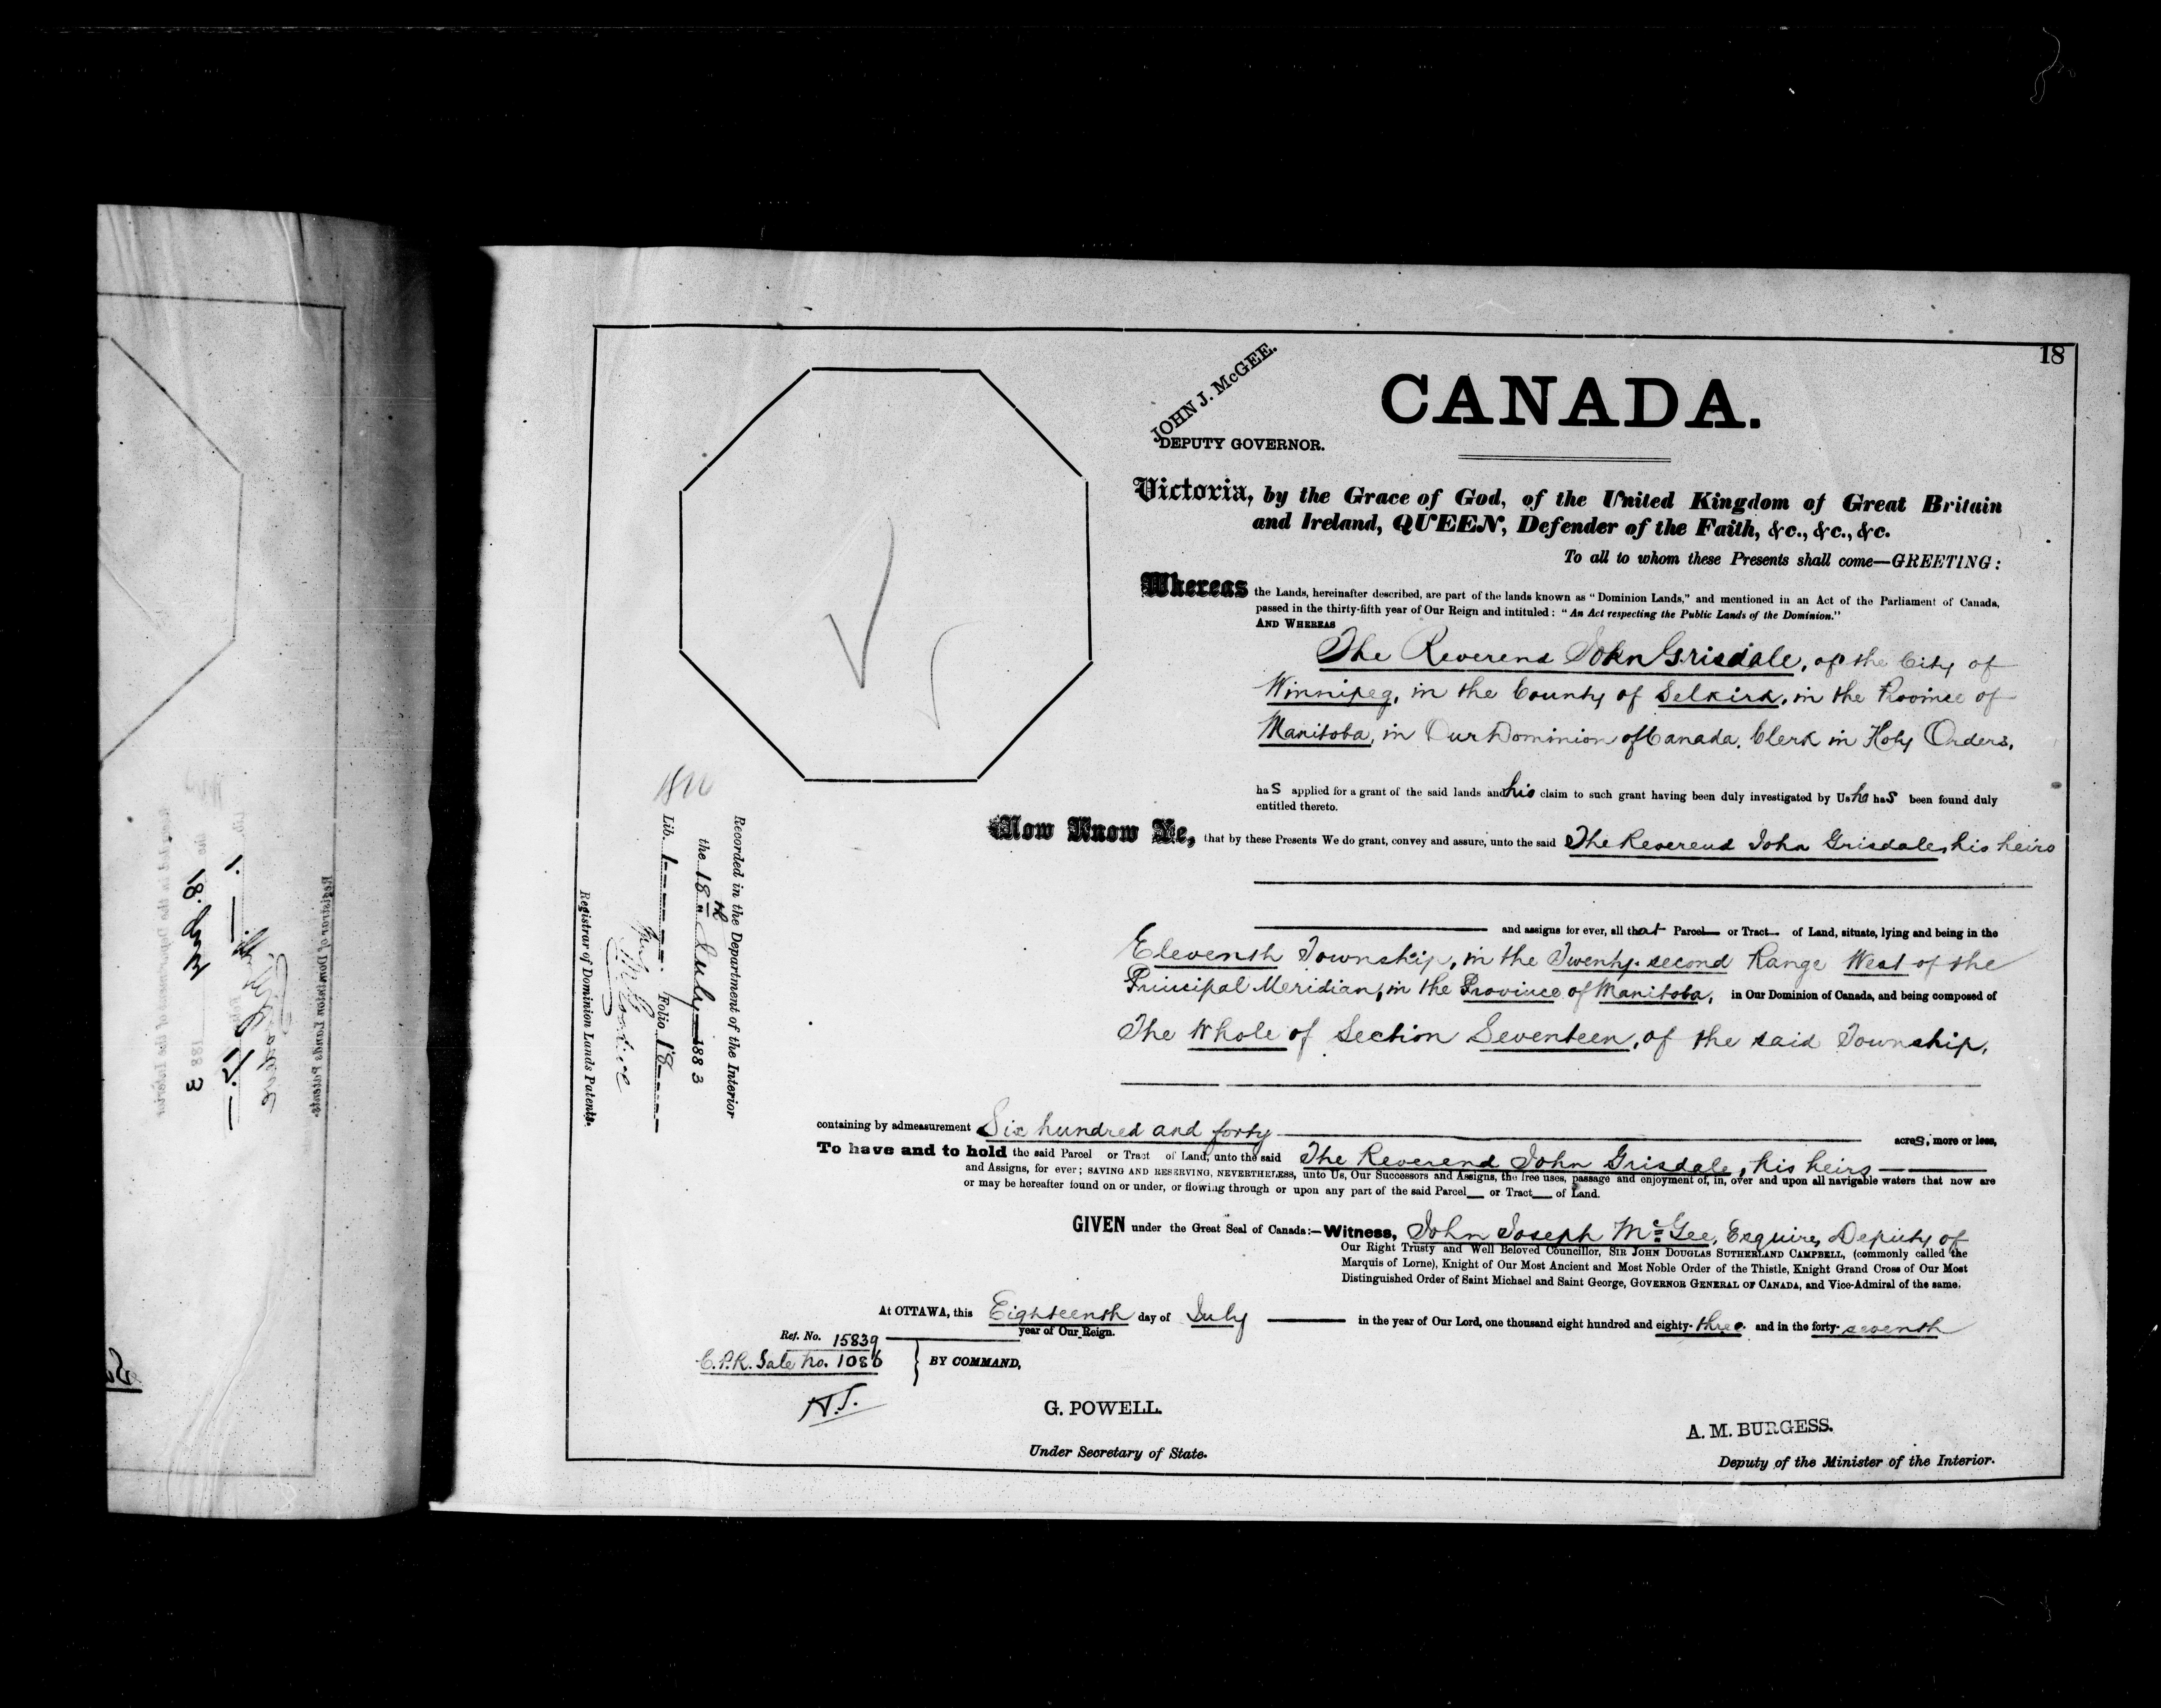 18
JOHN J. McGEE.
DEPUTY GOVERNOR.
CANADA.
Victoria, by the Grace of God, of the United Kingdom of Great Britain
and Ireland, QUEEN, Defender of the Faith, &c., &c., &c.
To all to whom these Presents shall come—GREETING:
Whereas the Lands, hereinafter described, are part of the lands known as "Dominion Lands," and mentioned in an Act of the Parliament of Canada,
passed in the thirty-fifth year of Our Reign and intituled: "An Act respecting the Public Lands of the Dominion."
AND WHEREAS
The Reverend John Grisdale, of the City of
Winnipeg, in the County of Selkirk, in the Province of
Manitoba, in Our Dominion of Canada, Clerk in Holy Orders,
has applied for a grant of the said lands and his claim to such grant having been duly investigated by Us he has been found duly
entitled thereto.
Now Know Ye, that by these Presents We do grant, convey and assure, unto the said The Reverend John Grisdale, his heirs
and assigns for ever, all that Parcel or Tract of Land, situate, lying and being in the
Eleventh Township, in the Twenty-second Range West of the
Principal Meridian, in the Province of Manitoba, in Our Dominion of Canada, and being composed of
The Whole of Section Seventeen, of the said Township,
containing by admeasurement Six hundred and forty acres, more or less,
To have and to hold the said Parcel or Tract of Land, unto the said The Reverend John Grisdale, his heirs
and Assigns, for ever; SAVING AND RESERVING, NEVERTHELESS, unto Us, Our Successors and Assigns, the free uses, passage and enjoyment of, in, over and upon all navigable waters that now are
or may be hereafter found on or under, or flowing through or upon any part of the said Parcel or Tract of Land.
GIVEN under the Great Seal of Canada:—Witness, John Joseph McGee, Esquire, Deputy of
Our Right Trusty and Well Beloved Councillor, SIR JOHN DOUGLAS SUTHERLAND CAMPBELL, (commonly called the
Marquis of Lorne), Knight of Our Most Ancient and Most Noble Order of the Thistle, Knight Grand Cross of Our Most
Distinguished Order of Saint Michael and Saint George, GOVERNOR GENERAL OF CANADA, and Vice-Admiral of the same.
At OTTAWA, this Eighteenth day of July in the year of Our Lord, one thousand eight hundred and eighty-three and in the forty-seventh
year of Our Reign.
Ref. No. 15839
C.P.R. Sale No. 1086
BY COMMAND,
G. POWELL.
Under Secretary of State.
A. M. BURGESS.
Deputy of the Minister of the Interior.
Recorded in the Department of the Interior
the 18th July 1883
Lib. 1 Folio 18
Registrar of Dominion Lands Patents.